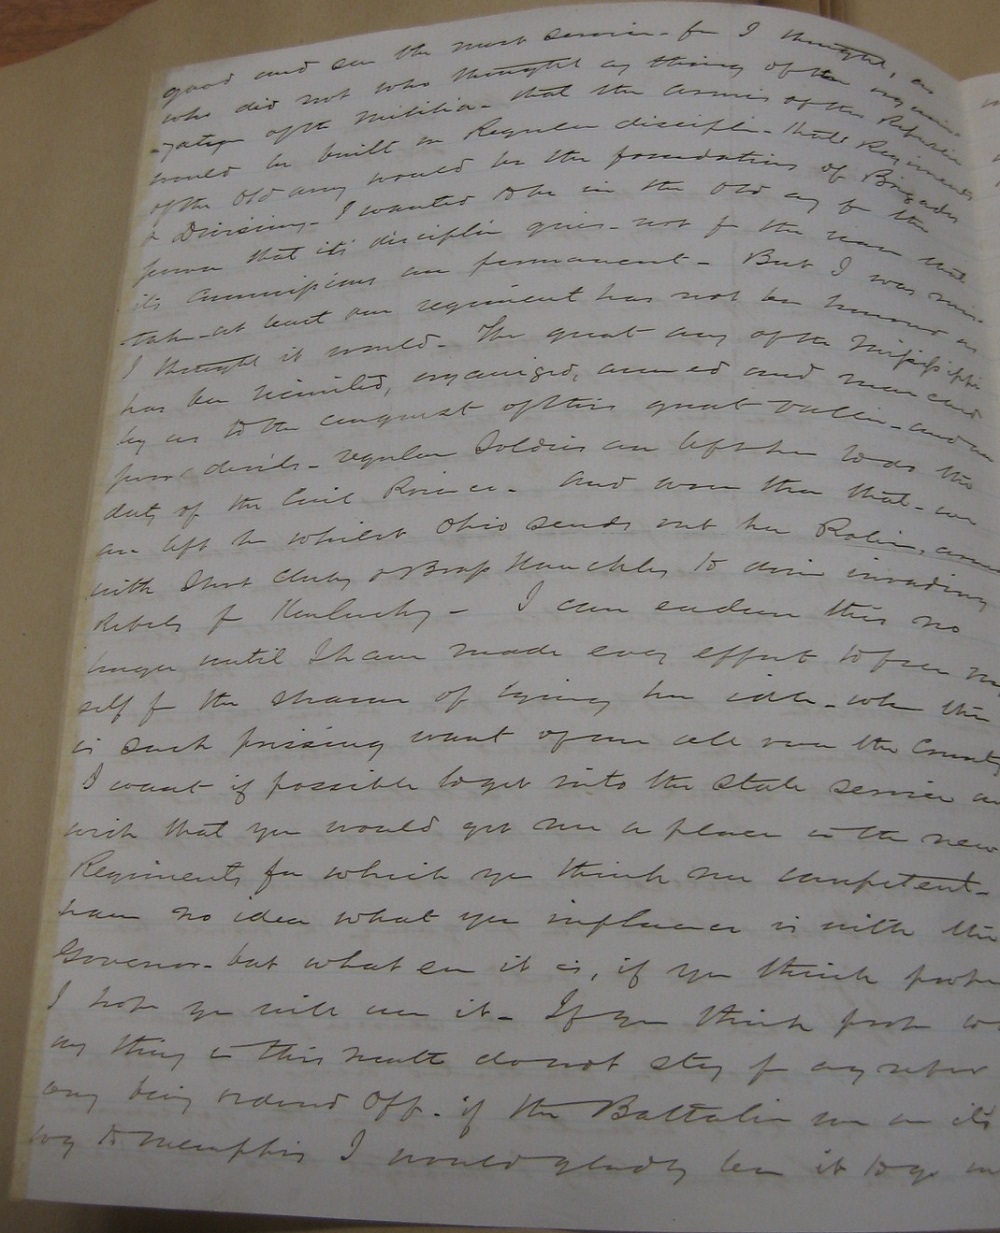 good and see the most service - for I thought, as
who did not who thought any thing of the organi
-zation of the Militia - that the armies of the Republic
would be built on Regular discipline - that Regiments
of the Old army would be the foundation of Brigades
& Divisions - I wanted to be in the Old army for the
reason that its discipline gives - not for the reason that
its Commissions are permanent - But I was mis-
taken - at least our regiment has not been honored as
I thought it would - The great army of the Mississippi
has been recruited, organized, armed and marched
by us to the conquest of this great Valley - and we
poor devils - regular Soldiers are left here to do the
duty of the Civil Police. And worse than that - we
are left here whilst Ohio sends out her
with Shot Clubs & Brass Knuckles to drive invading
Rebels from Kentucky - I can endure this no
longer until I have made every effort to free my
self from the shame of lying here idle - when there
is such pressing want of men all over the Country
I want if possible to get into the State service and
wish that you would get me a place in the new
Regiments for which you think me competent -
have no idea what your influence is with the
Governor - but whatever it is, if you think proper
I hope you will use it - If you think proper to
any thing in this matter do not stay for any
my being ordered off - if the Battalion were on its
way to Memphis I would gladly leave it to go in